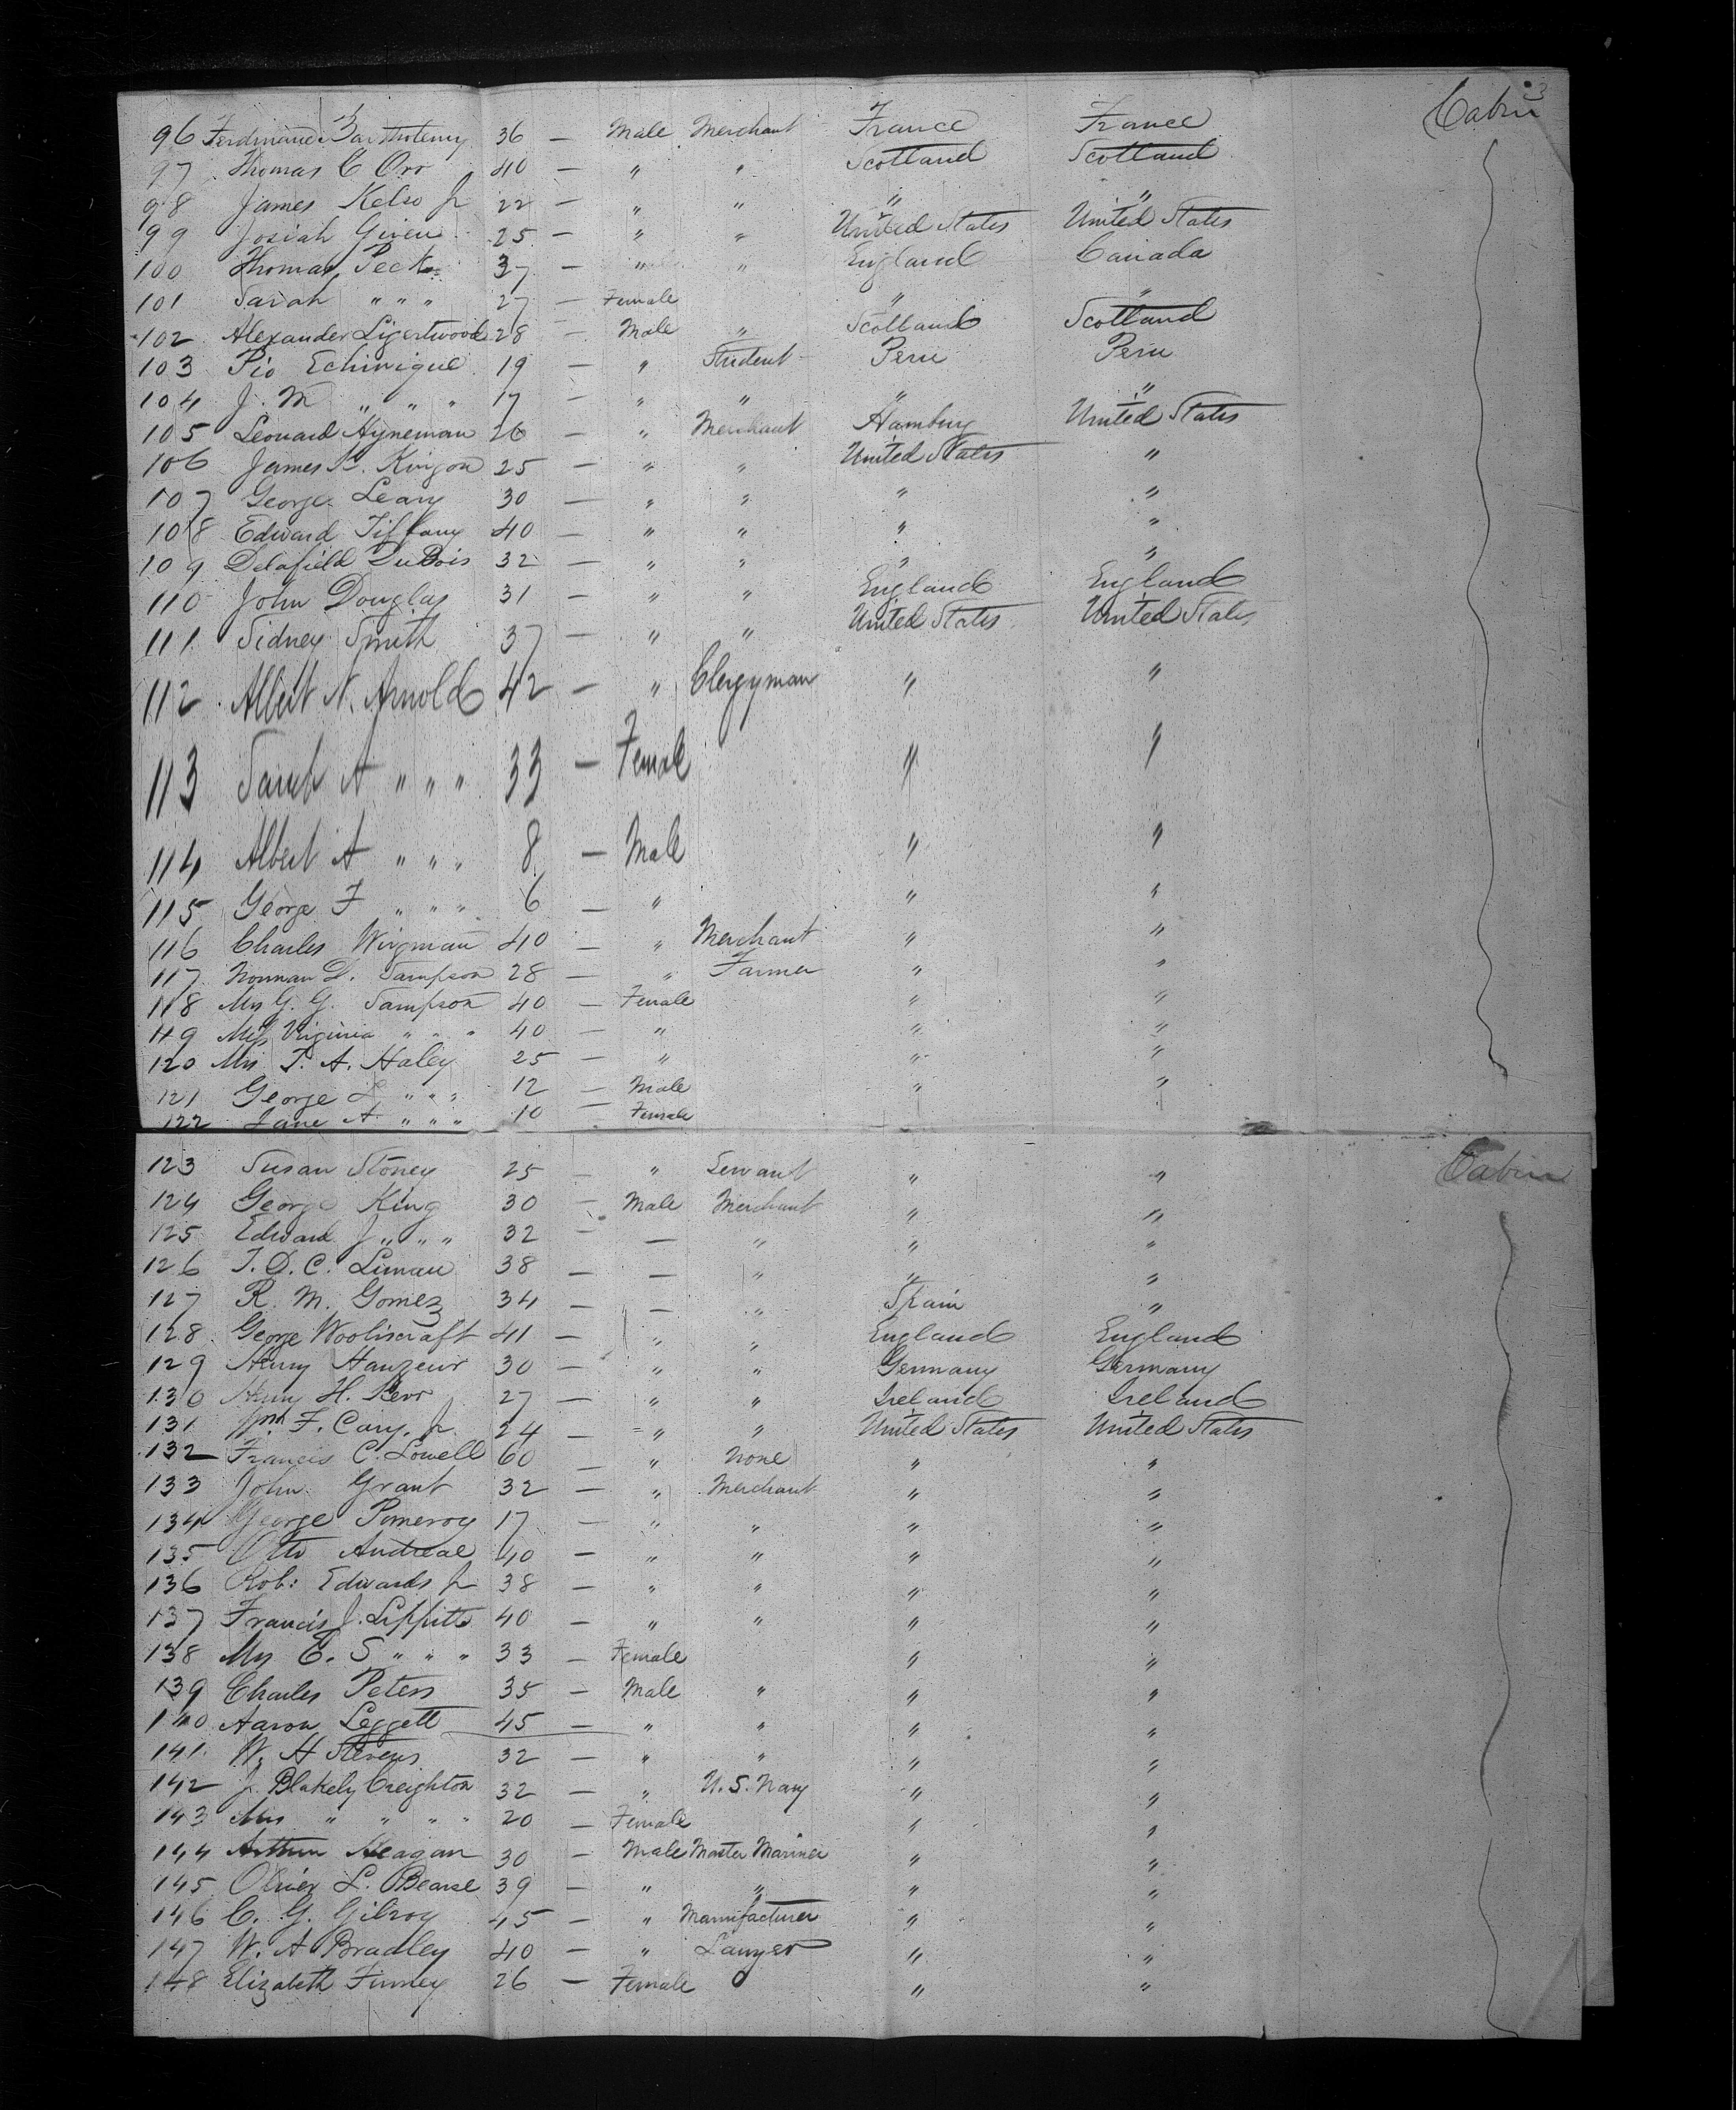 3
96 Ferdinand Barthotemy 36 — Male Merchant France France Cabin
97 Thomas C Orr 40 — " " Scotland Scotland
98 James Kelso Jr 22 — " " " "
99 Josiah Given 25 — " " United States United States
100 Thomas Peck 37 — " " England Canada
101 Sarah " " " 27 — Female " "
102 Alexander Ligertwood 28 — Male " Scotland Scotland
103 Pio Echinique 19 — " Student Peru Peru
104 J. M " " " 17 — " " " "
105 Leonard Hyneman 26 — " Merchant Hamburg United States
106 James Kingon 25 — " " United States "
107 George Leary 30 — " " " "
108 Edward Tiffany 40 — " " " "
109 Delafield DuBois 32 — " " " "
110 John Douglas 31 — " " England England
111 Sidney Smith 37 — " " United States United States
112 Albert N. Arnold 42 — " Clergyman " "
113 Sarah A " " " 33 — Female " "
114 Albert A " " " 8 — Male " "
115 George F " " " 6 — " " "
116 Charles Wirgman 40 — " Merchant " "
117 Norman D. Sampson 28 — " Farmer " "
118 Mrs G. G. Sampson 40 — Female " "
119 Miss Virginia " " " 40 — " " "
120 Mrs T. A. Haley 25 — " " "
121 George L " " " 12 — Male " "
122 Jane A " " " 10 — Female
123 Susan Stoney 25 — " Servant " " Cabin
124 George King 30 — Male Merchant " "
125 Edward J " " " 32 — — " " "
126 T. D. C. Liman 38 — — " " "
127 R. M. Gomez 34 — — " Spain "
128 George Wooliscraft 41 — " " England England
129 Henry Hauzeur 30 — " " Germany Germany
130 Henry H. Kerr 27 — " " Ireland Ireland
131 Wm F. Cary, Jr. 24 — " " United States United States
132 Francis C. Lowell 60 — " None " "
133 John Grant 32 — " Merchant " "
134 George Pomeroy 17 — " " " "
135 Otto Andreae 40 — " " " "
136 Rob: Edwards Jr 38 — " " " "
137 Francis J. Lippitt 40 — " " " "
138 Mrs E. S " " " 33 — Female " "
139 Charles Peters 35 — Male " " "
140 Aaron Leggett 45 — " " " "
141 W. H Stevens 32 — " " " "
142 J. Blakely Creighton 32 — " U.S. Navy " "
143 Mrs " " " " 20 — Female " "
144 Arthur Meagan 30 — Male Master Mariner " "
145 Oliver L. Bearse 39 — " " " "
146 C. G. Gilroy 45 — " Manufacturer " "
147 W. A Bradley 40 — " Lawyer " "
148 Elizabeth Finney 26 — Female " "